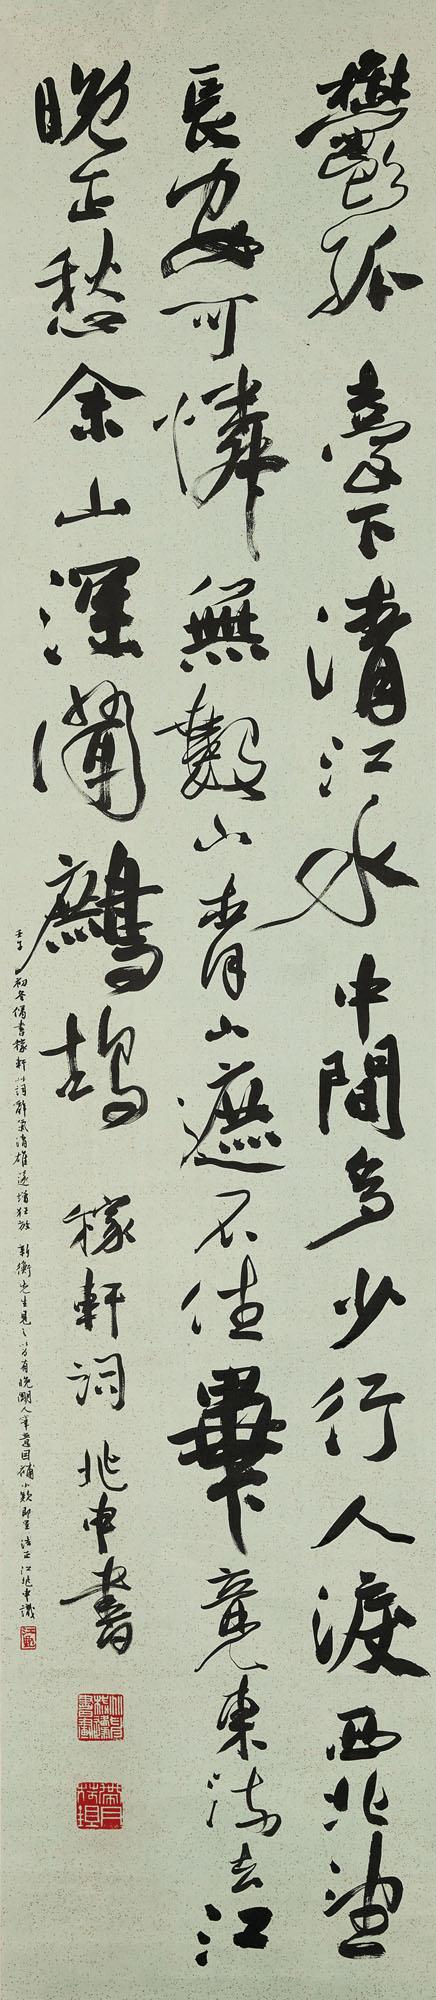 鬱孤臺下清江水中間多少行人淚西北望
長安可憐無數山青山遮不住畢竟東流去江
晚正愁余山深聞鷓鴣 稼軒詞 兆申書
壬子初冬偶書稼軒小詞辭氣清雄遂增狂放 新衡先生見之以為有晚明人筆意因補小款即呈 法正 江兆申識